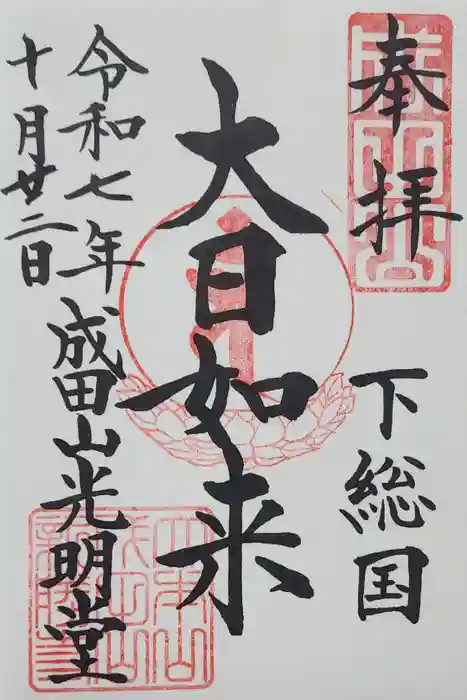 奉拝
下総国
大日如来
成田山光明堂
令和七年
十月廿二日